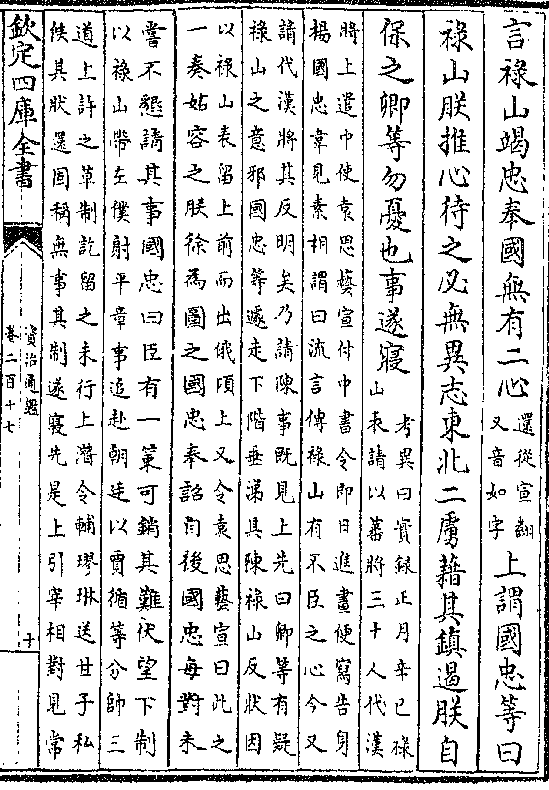 言祿山竭忠奉國無有二心還從宣翻
又音如字上謂國忠等曰
祿山朕推心待之必無異志東北二虜藉其鎮遏朕自
保之卿等勿憂也事遂寢考異曰實録正月辛巳祿
山表請以蕃將三十人代漢
將上遣中使袁思藝宣付中書令即日進畫便寫告身
楊國忠韋見素相謂曰流言傳祿山有不臣之心今又
請代漢將其反明矣乃請陳事既見上先曰卿等有疑
祿山之意邪國忠等遽走下階垂涕具陳祿山反狀因
以祿山表留上前而出俄頃上又令袁思藝宣曰此之
一奏姑容之朕徐為圖之國忠奉詔自後國忠每對未
嘗不懇請其事國忠曰臣有一策可銷其難伏望下制
以祿山帶左僕射平章事追赴朝廷以賈循等分帥三
道上許之草制訖留之未行上潛令輔璆琳送甘子私
候其狀還固稱無事其制遂寢先是上引宰相對見常
欽定四庫全書
資治通鑑
卷二百十七
十